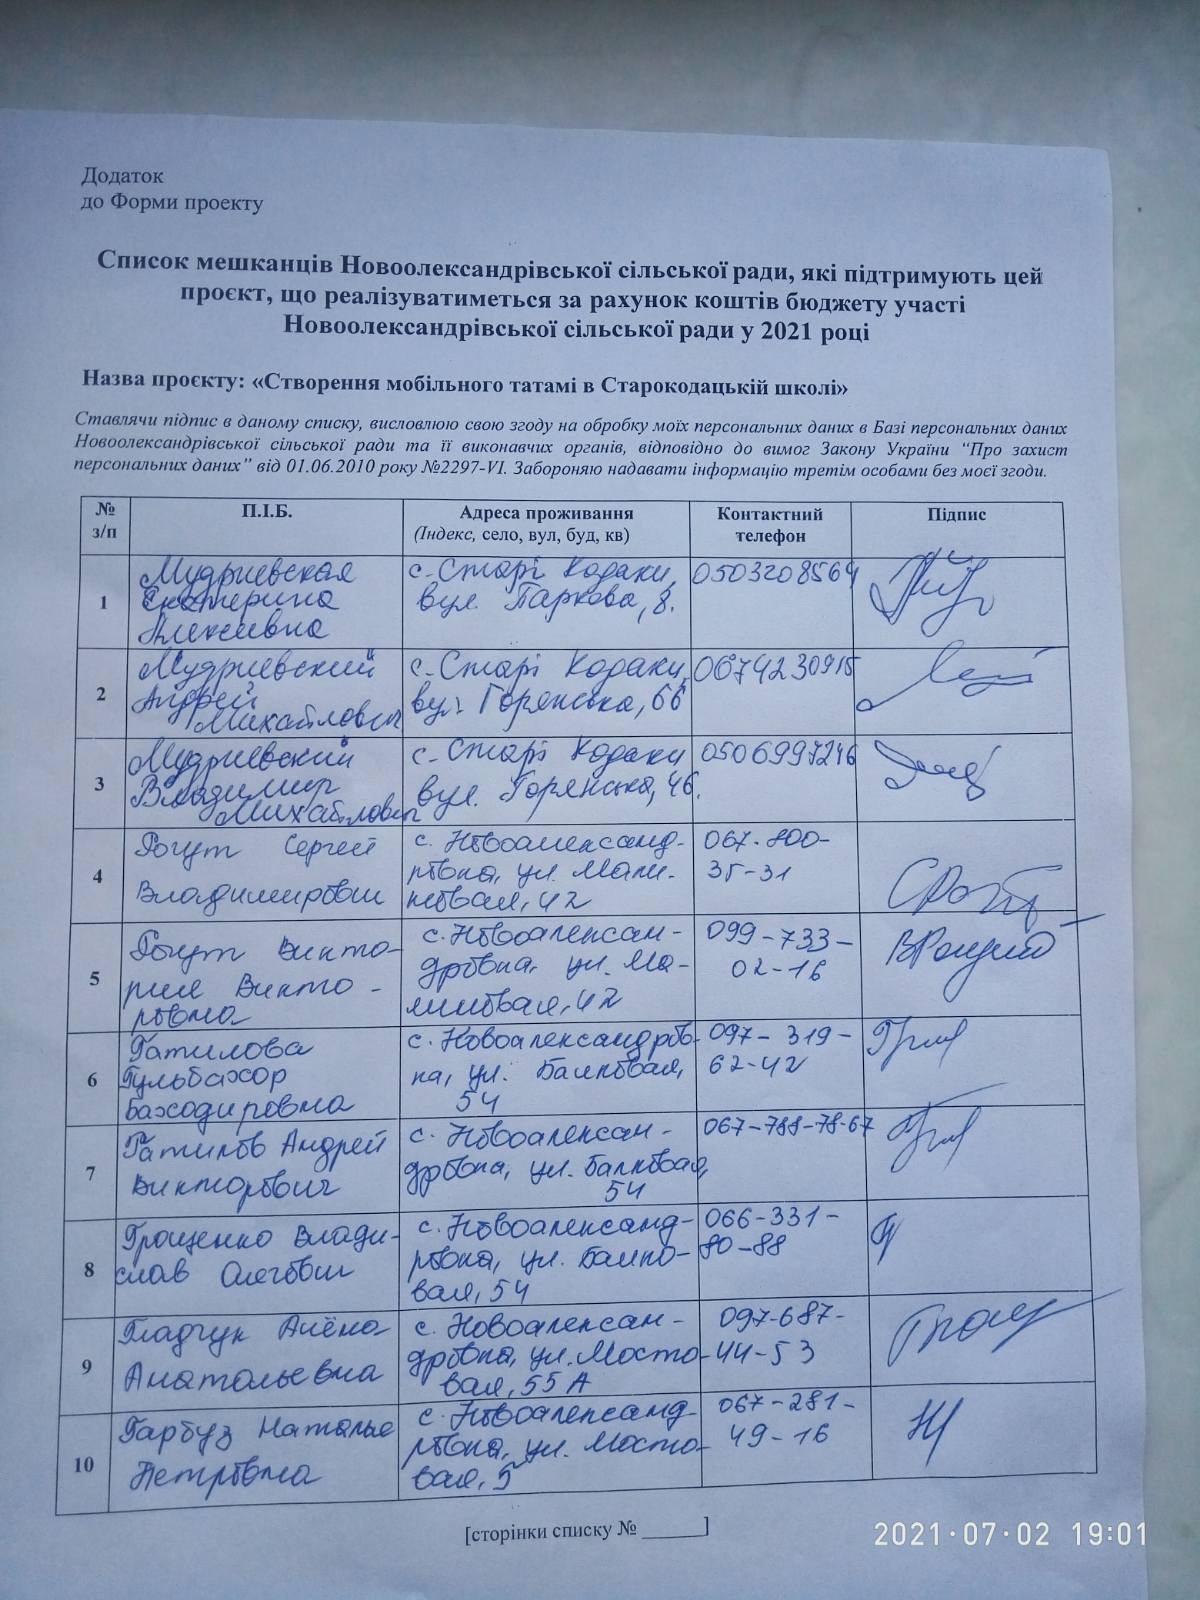 Додаток
до Форми проекту
Список мешканців Новоолександрівської сільської ради, які підтримують цей
проєкт, що реалізуватиметься за рахунок коштів бюджету участі
Новоолександрівської сільської ради у 2021 році
Назва проєкту: «Створення мобільного татамі в Старокодацькій школі»
Ставлячи підпис в даному списку, висловлюю свою згоду на обробку моїх персональних даних в Базі персональних даних
Новоолександрівської сільської ради та її виконавчих органів, відповідно до вимог Закону України "Про захист
персональних даних" від 01.06.2010 року №2297-VI. Забороняю надавати інформацію третім особами без моєї згоди.
№ з/п П.І.Б. Адреса проживання (Індекс, село, вул, буд, кв) Контактний телефон Підпис
1 Мудриевская Екатерина Алексеевна с. Старі Кодаки, вул. Паркова, 8. 0503208564
2 Мудриевский Андрей Михайлович с. Старі Кодаки, вул. Горянська, 66 0674230915
3 Мудриевский Владимир Михайлович с. Старі Кодаки вул. Горянська, 46. 0506997246
4 Рогут Сергей Владимирович с. Новоалександ-ровка, ул. Мали-новая, 42 067-800-35-31
5 Рогут Викто-рия Викто-ровна с. Новоалексан-дровка, ул. Ма-линовая, 42 099-733-02-16
6 Гатилова Гульбахор Баходировна с. Новоалександров-ка, ул. Балковая, 54 097-319-62-42
7 Гатилов Андрей Викторович с. Новоалексан-дровка, ул. Балковая, 54 067-788-78-67
8 Грощенко Влади-слав Олегович с. Новоалександ-ровка, ул. Балко-вая, 54 066-331-80-88
9 Гладчук Алёна Анатольевна с. Новоалексан-дровка, ул. Мосто-вая, 55 А 097-687-44-53
10 Гарбуз Наталья Петровна с. Новоалександ-ровка, ул. Мосто-вая, 5 067-281-49-16
[сторінки списку № ______]
2021·07·02 19:01